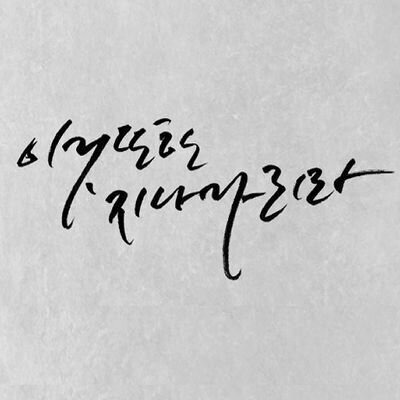 이것 또한
지나가리라